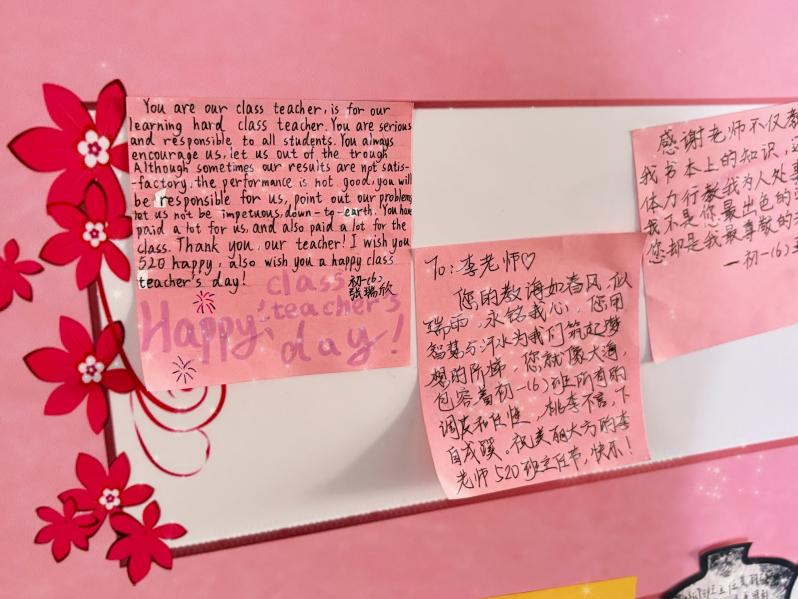 You are our class teacher, is for our
learning hard class teacher. You are serious
and responsible to all students. You always
encourage us, let us out of the trough
Although sometimes our results are not satis-
-factory, the performance is not good, you will
be responsible for us, point out our problems
let us not be impetuous, down-to-earth. You have
paid a lot for us, and also paid a lot for the
class. Thank you, our teacher! I wish you
520 happy, also wish you a happy class
teacher's day!
初一(6)
张瑞欣
Happy class
teacher's
day!
To:李老师♡
您的教诲如春风,似
瑞雨,永铭我心,您用
智慧与汗水为我们筑起梦
想的阶梯,您就像大海,
包容着初一(6)班所有的
调皮和任性,桃李不言,下
自成蹊。祝美丽大方的李
老师520班主任节,快乐!
感谢老师不仅教
我书本上的知识,还
体力行教我为人处事
我不是您最出色的
您却是我最尊敬的
—初一(6)